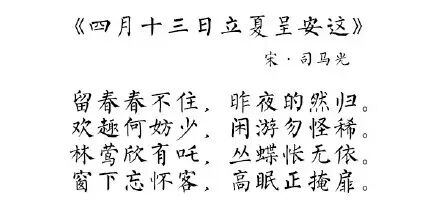 《四月十三日立夏呈安这》
宋·司马光
留春春不住，昨夜的然归。
欢趣何妨少，闲游勿怪稀。
林莺欣有吒，丛蝶怅无依。
窗下忘怀客，高眠正掩扉。